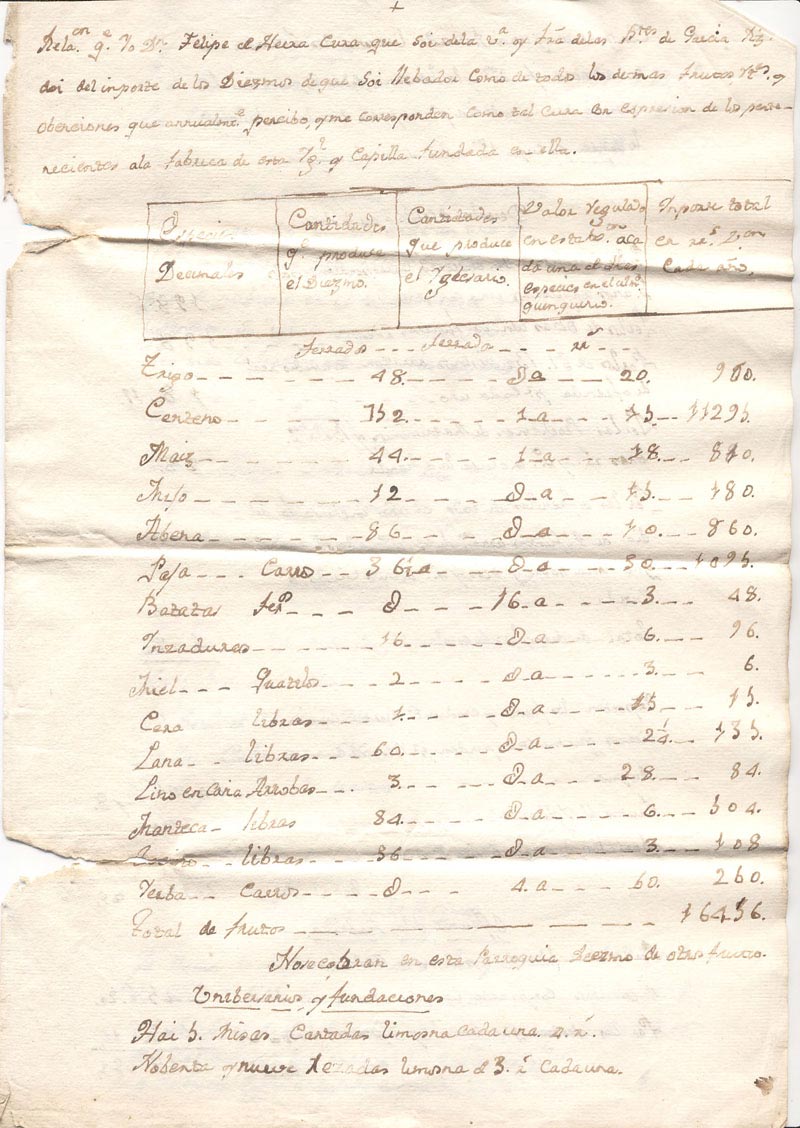 +
Relaon qe Yo Dn Felipe el Neira Cura que Soi dela va y fra delas Nres de Garcia Rz
doi del inporte de los Diezmos de que Soi llebador Como de todos los demas frutos Rtas y
obenciones que annualmte percibo, y me corresponden como tal Cura Con espresion de los perte-
necientes ala fabrica de esta Yga y Capilla fundada en ella.
Especies Decimales
Cantidades qe produce el Diezmo.
Cantidades que produce el Yglesario.
Valor regulado en esta on a ca da una el dhas especies en el ulto quinquenio.
Inporte total en rs von Cada año.
ferrados - - ferrados - - rs
Trigo - - - 48 - - - 0 a - - 20. 960.
Centeno - - - 752 - - - 1 a - - 15. - 11295.
Maiz - - - 44 - - - 1 a - - 18. - 810.
Mijo - - - 12 - - - 0 a - - 15. - 180.
Abena - - - 86 - - - 0 a - - 10. - 860.
Paja - - - Carros - 36½ a - - 0 a - - 30. - 1095.
Batatas ferdo - - 0 - - 16 a - - 3. - 48.
Inzadures - - - 16 - - - 0 a - - 6. - 96.
Miel - - - Quartlos - - 2 - - 0 a - - 3. - 6.
Cera libras - - 1. - - 0 a - - 15 - 15.
Lana - - libras - - 60. - - 0 a - - 2¼. - 135.
Lino en Caña Arrobas - - 3. - - 0 a - - 28. - 84.
Manteca - libras 84. - - 0 a - - 6. - 504.
libras - - 36 - - 0 a - - 3. - 108
Yerba - - Carros - - 0 - - 4. a - - 60. 260.
Total de frutos - - - 16456.
No se cobran en esta Parroquia Diezmo de otro fruto.
Unibersarios y fundaciones
Hai 5. Misas Cantadas limosna cada una 4. rs.
Nobenta y nueve rezadas limosna d 3. rs Cada una.